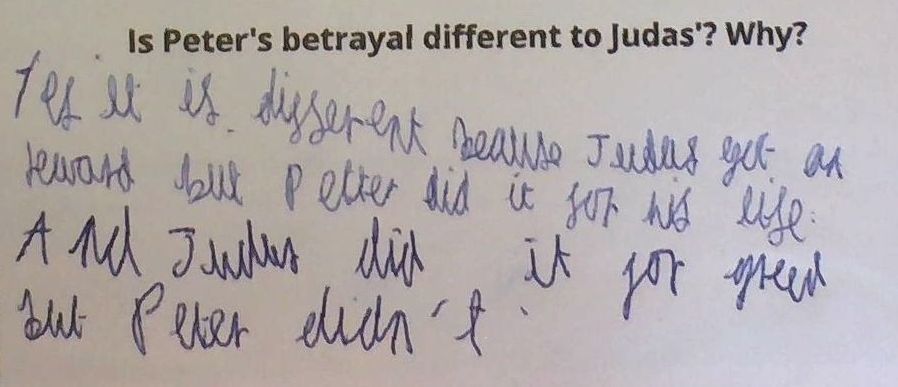 Is Peter's betrayal different to Judas'? Why?
Yes it is different because Judas get an
reward but Petter did it for his life.
And Judas did it for greed
but Peter didn't.